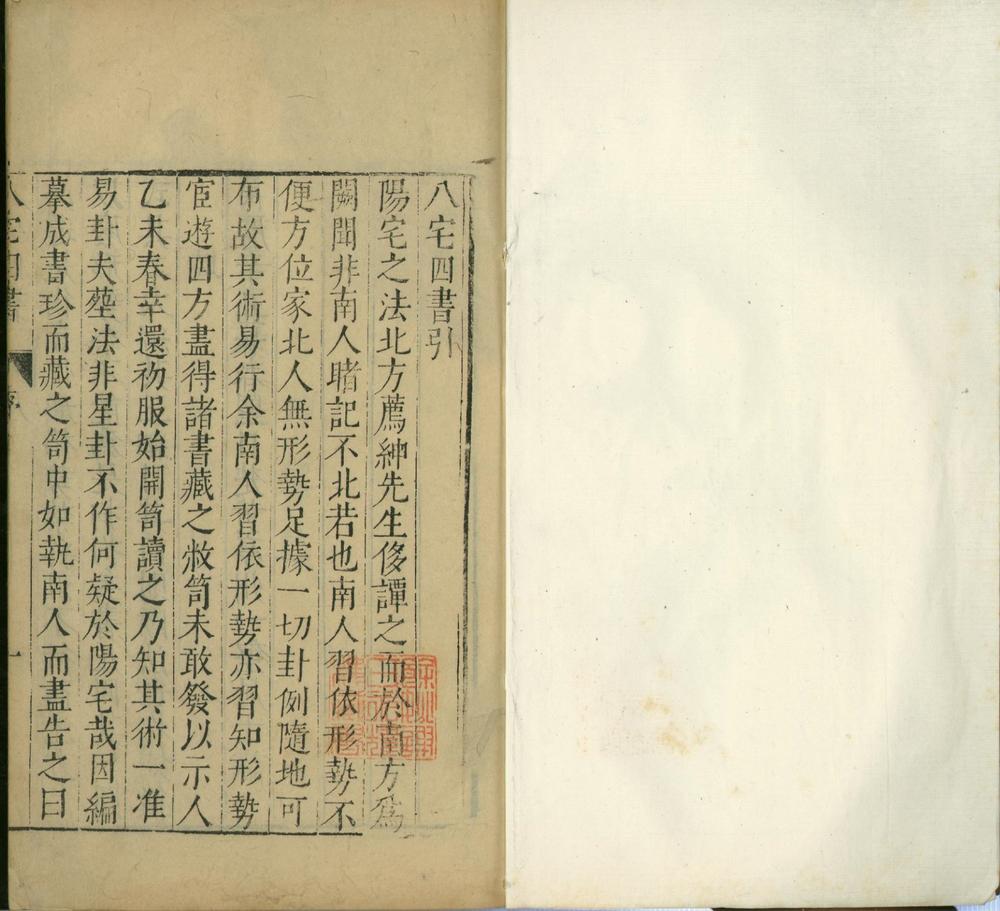 八宅四書引
陽宅之法北方薦紳先生侈譚之而於南方爲
闕聞非南人睹記不北若也南人習依形勢不
便方位家北人無形勢足據一切卦例隨地可
布故其術易行余南人習依形勢亦習知形勢
宦遊四方盡得諸書藏之敝笥未敢發以示人
乙未春幸還初服始開笥讀之乃知其術一准
易卦夫塟法非星卦不作何疑於陽宅哉因編
摹成書珍而藏之笥中如執南人而盡告之曰
八宅四書 序 一